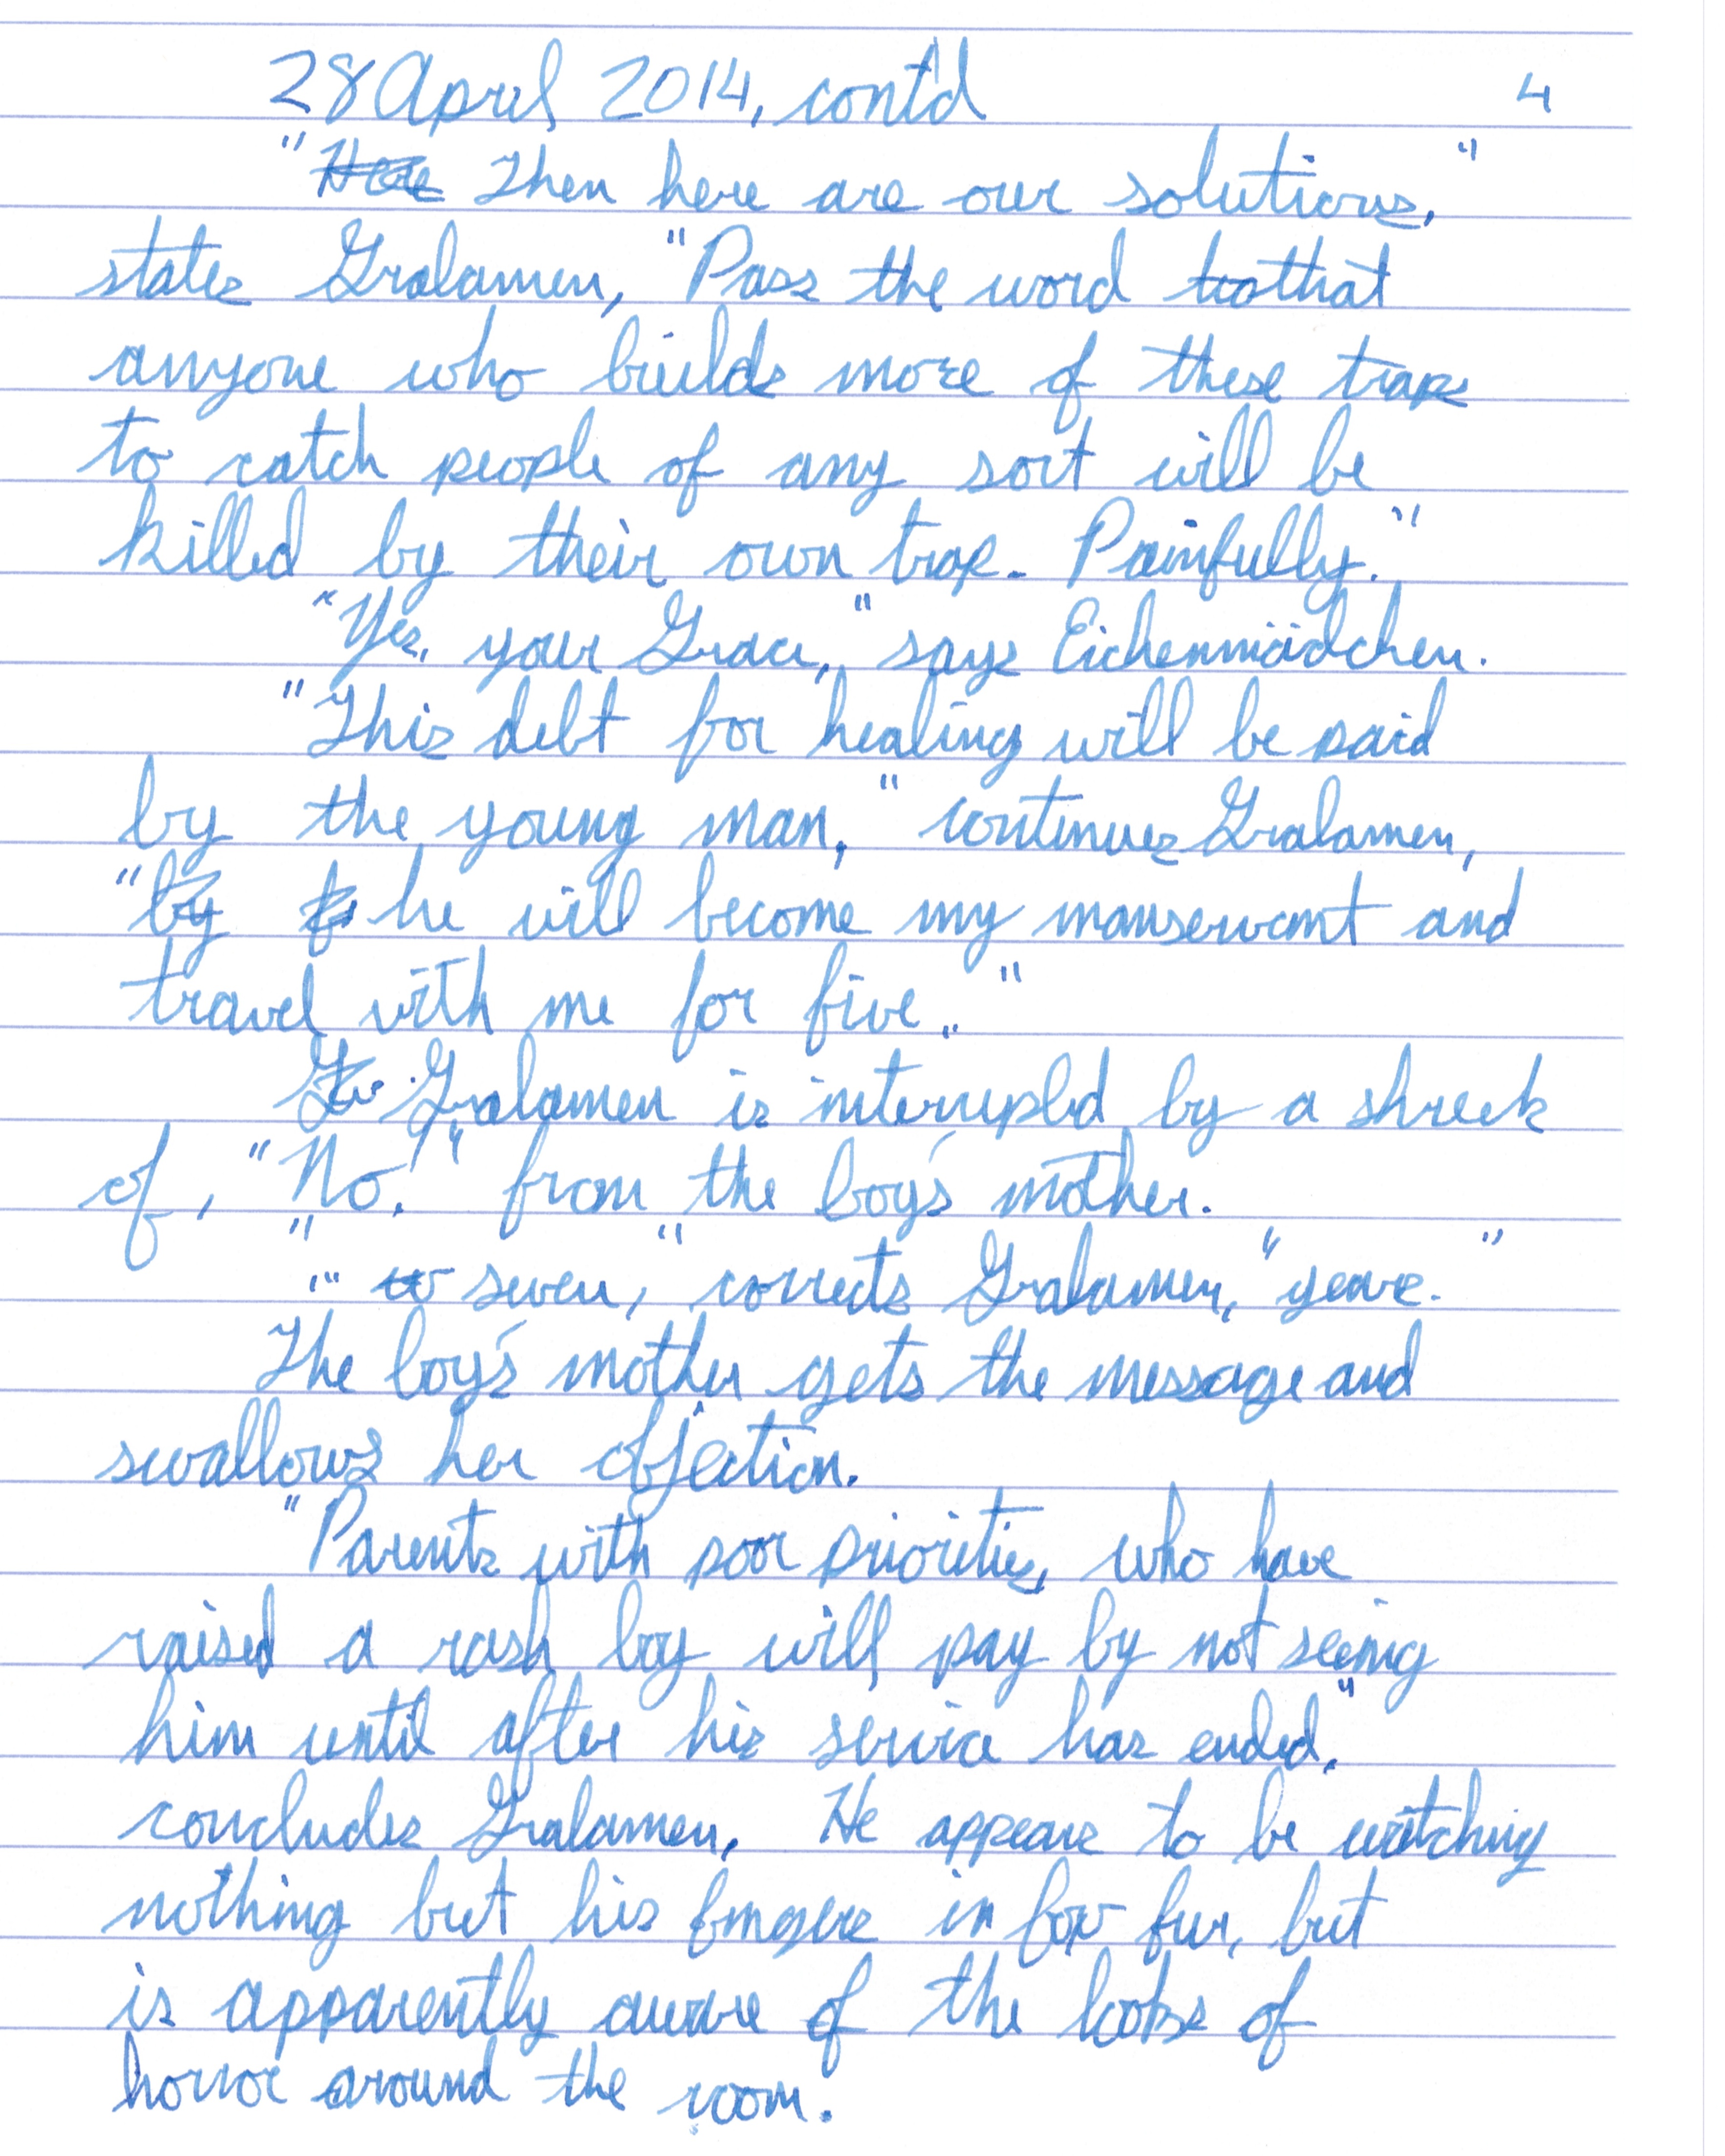 28 April 2014, cont'd 4
"Here Then here are our solutions,"
states Gralamen, "Pass the word to that
anyone who builds more of these traps
to catch people of any sort will be
killed by their own trap. Painfully."
"Yes, your Grace," says Eichenmädchen.
"This debt for healing will be paid
by the young man," continues Gralamen,
"by he will become my manservant and
travel with me for five.."
Gralamen is interrupted by a shreek
of, "No!" from the boy's mother.
"... seven," corrects Gralamen, "years."
The boy's mother gets the message and
swallows her objection.
"Parents with poor priorities, who have
raised a rash boy will pay by not seeing
him until after his service has ended,"
concludes Gralamen. He appears to be watching
nothing but his fingers in fox fur, but
is apparently aware of the looks of
horror around the room.